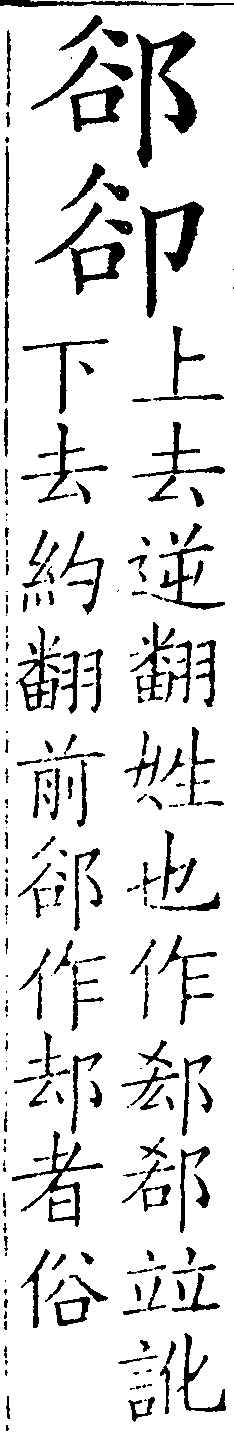 郤卻
上去逆翻姓也作郄竝訛
下去約翻前郤作𨚫者俗